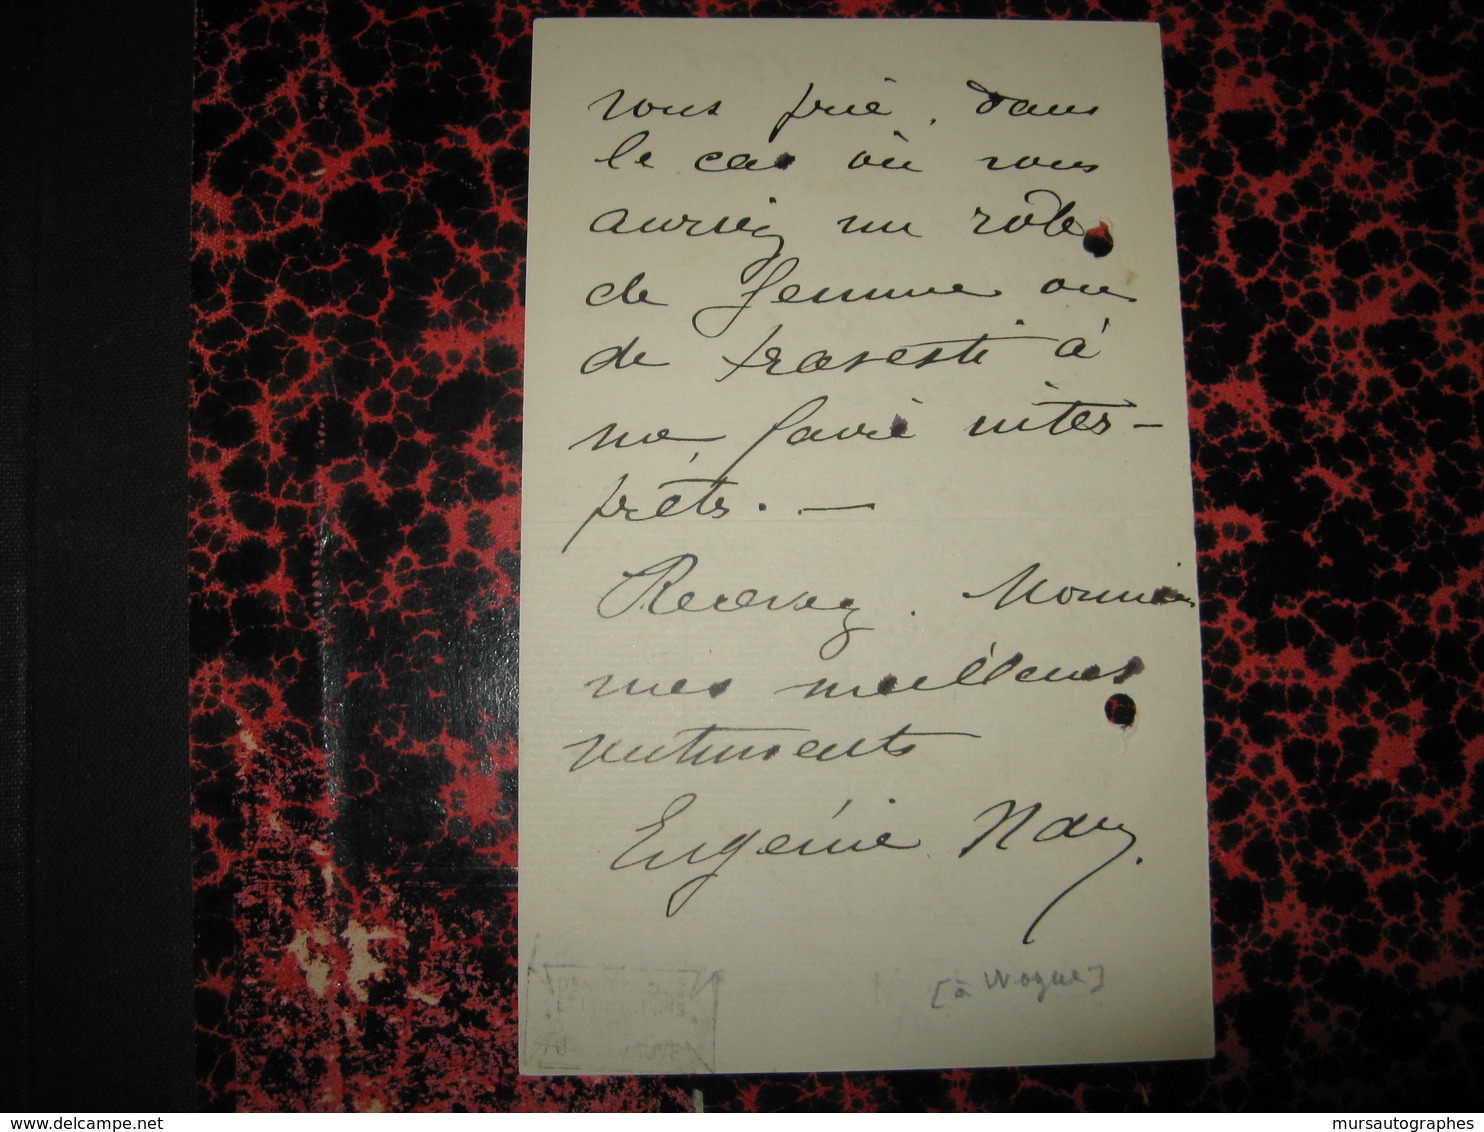 vous prie, dans
le cas où vous
auriez un rôle
de femme ou
de travesti à
me faire inter-
prêter. —
Recevez, Monsieur
mes meilleurs
sentiments
Eugénie Nau.
[à Wogue]
www.delcampe.net
mursautographes